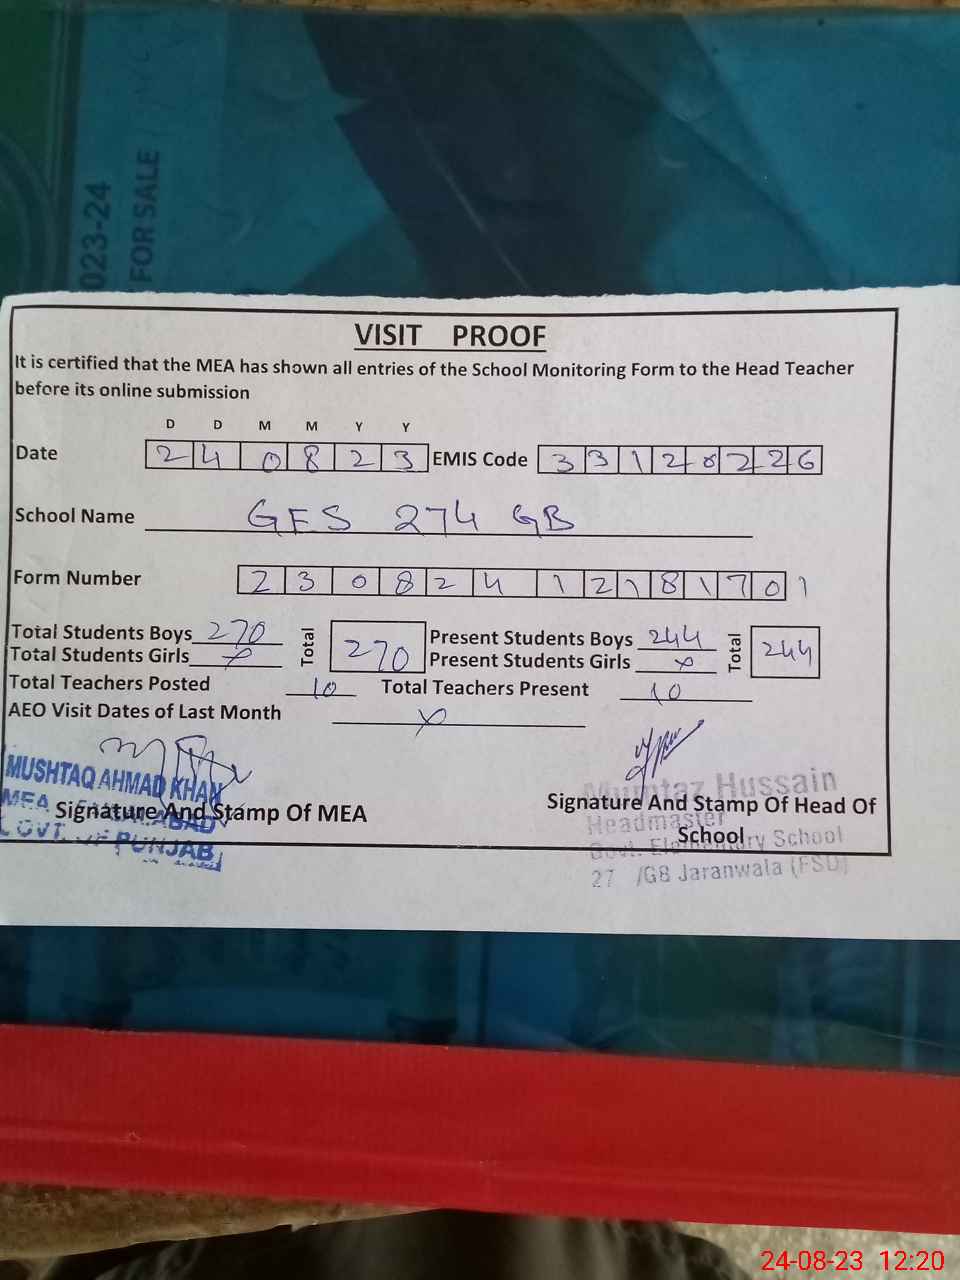 023-24
FOR SALE
VISIT PROOF
It is certified that the MEA has shown all entries of the School Monitoring Form to the Head Teacher
before its online submission
D D M M Y Y
Date 2 4 0 8 2 3 EMIS Code 3 3 1 2 0 2 2 6
School Name GES 274 GB
Form Number 2 3 0 8 2 4 1 2 1 8 1 7 0 1
Total Students Boys 270 Total 270 Present Students Boys 244 Total 244
Total Students Girls x Present Students Girls x
Total Teachers Posted 10 Total Teachers Present 10
AEO Visit Dates of Last Month x
MUSHTAQ AHMAD KHAN
MEA FAISALABAD
GOVT. OF PUNJAB
Signature And Stamp Of MEA
Mumtaz Hussain
Signature And Stamp Of Head Of
School
Headmaster
Govt. Elementary School
27 /GB Jaranwala (FSD)
24-08-23 12:20